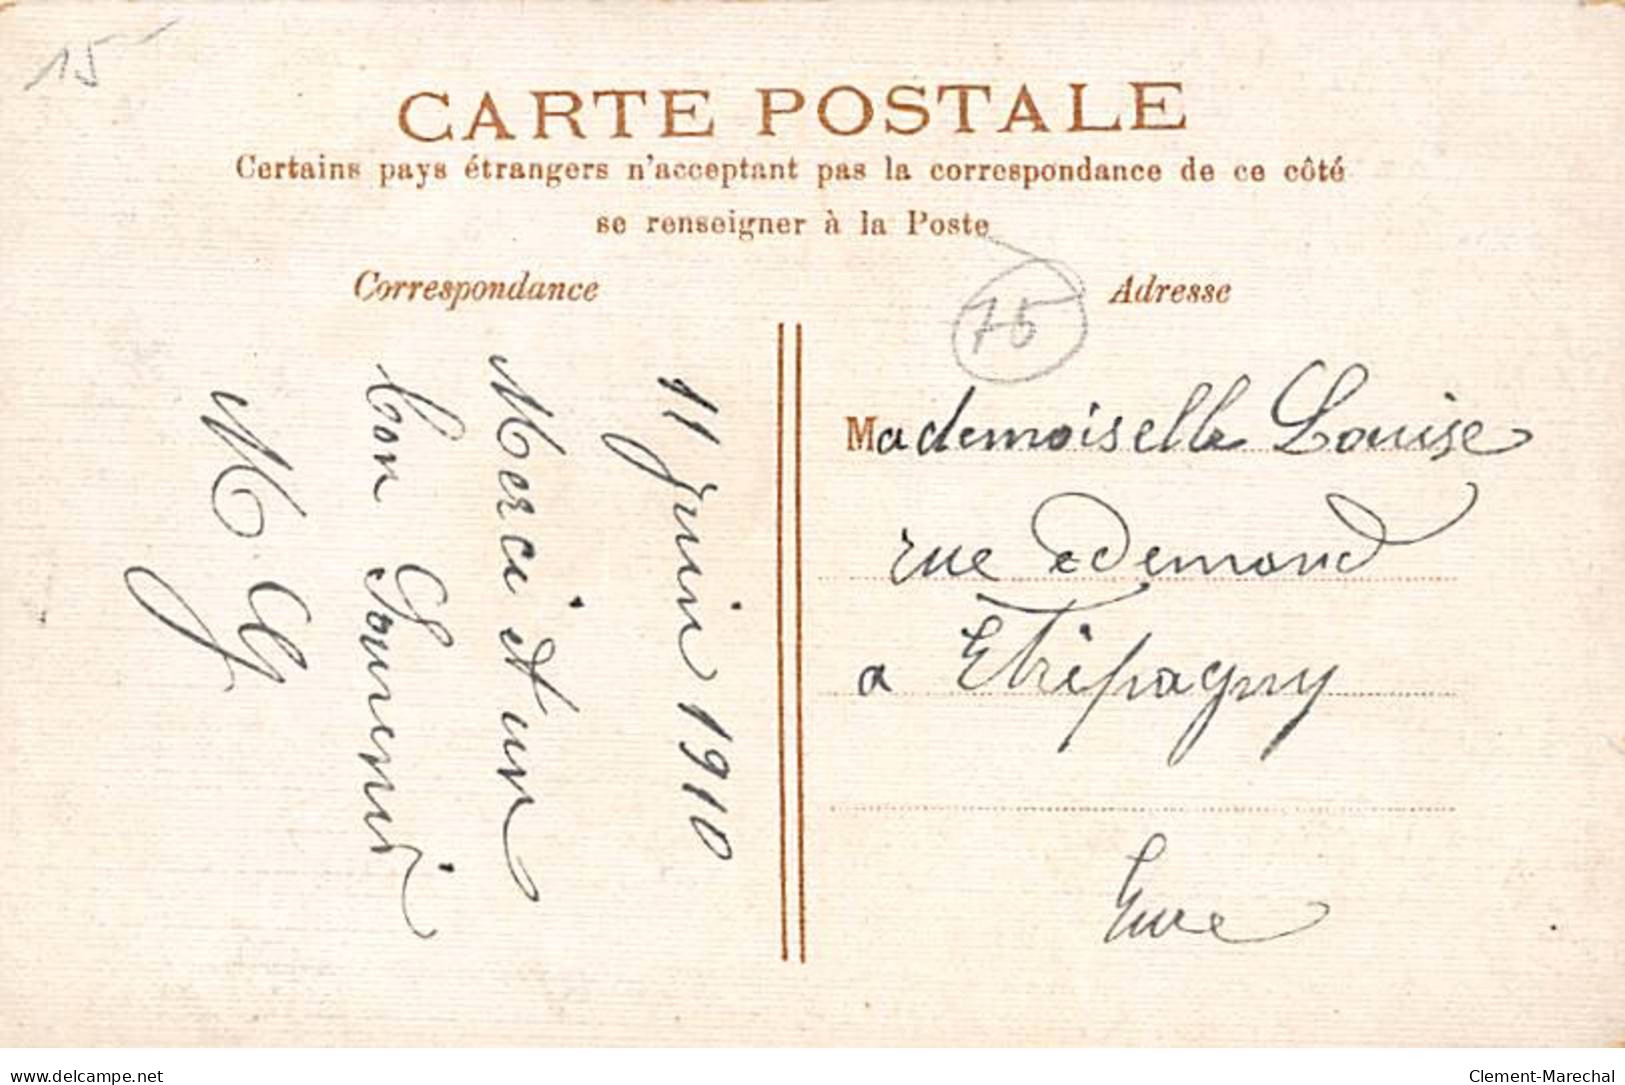 15
CARTE POSTALE
Certains pays étrangers n'acceptant pas la correspondance de ce côté
se renseigner à la Poste
Correspondance
Adresse
75
11 juin 1910
Merci et un
bon Souvenir
M G
Mademoiselle Louise
rue
a Etrépagny
Eure
www.delcampe.net
Clement-Marechal